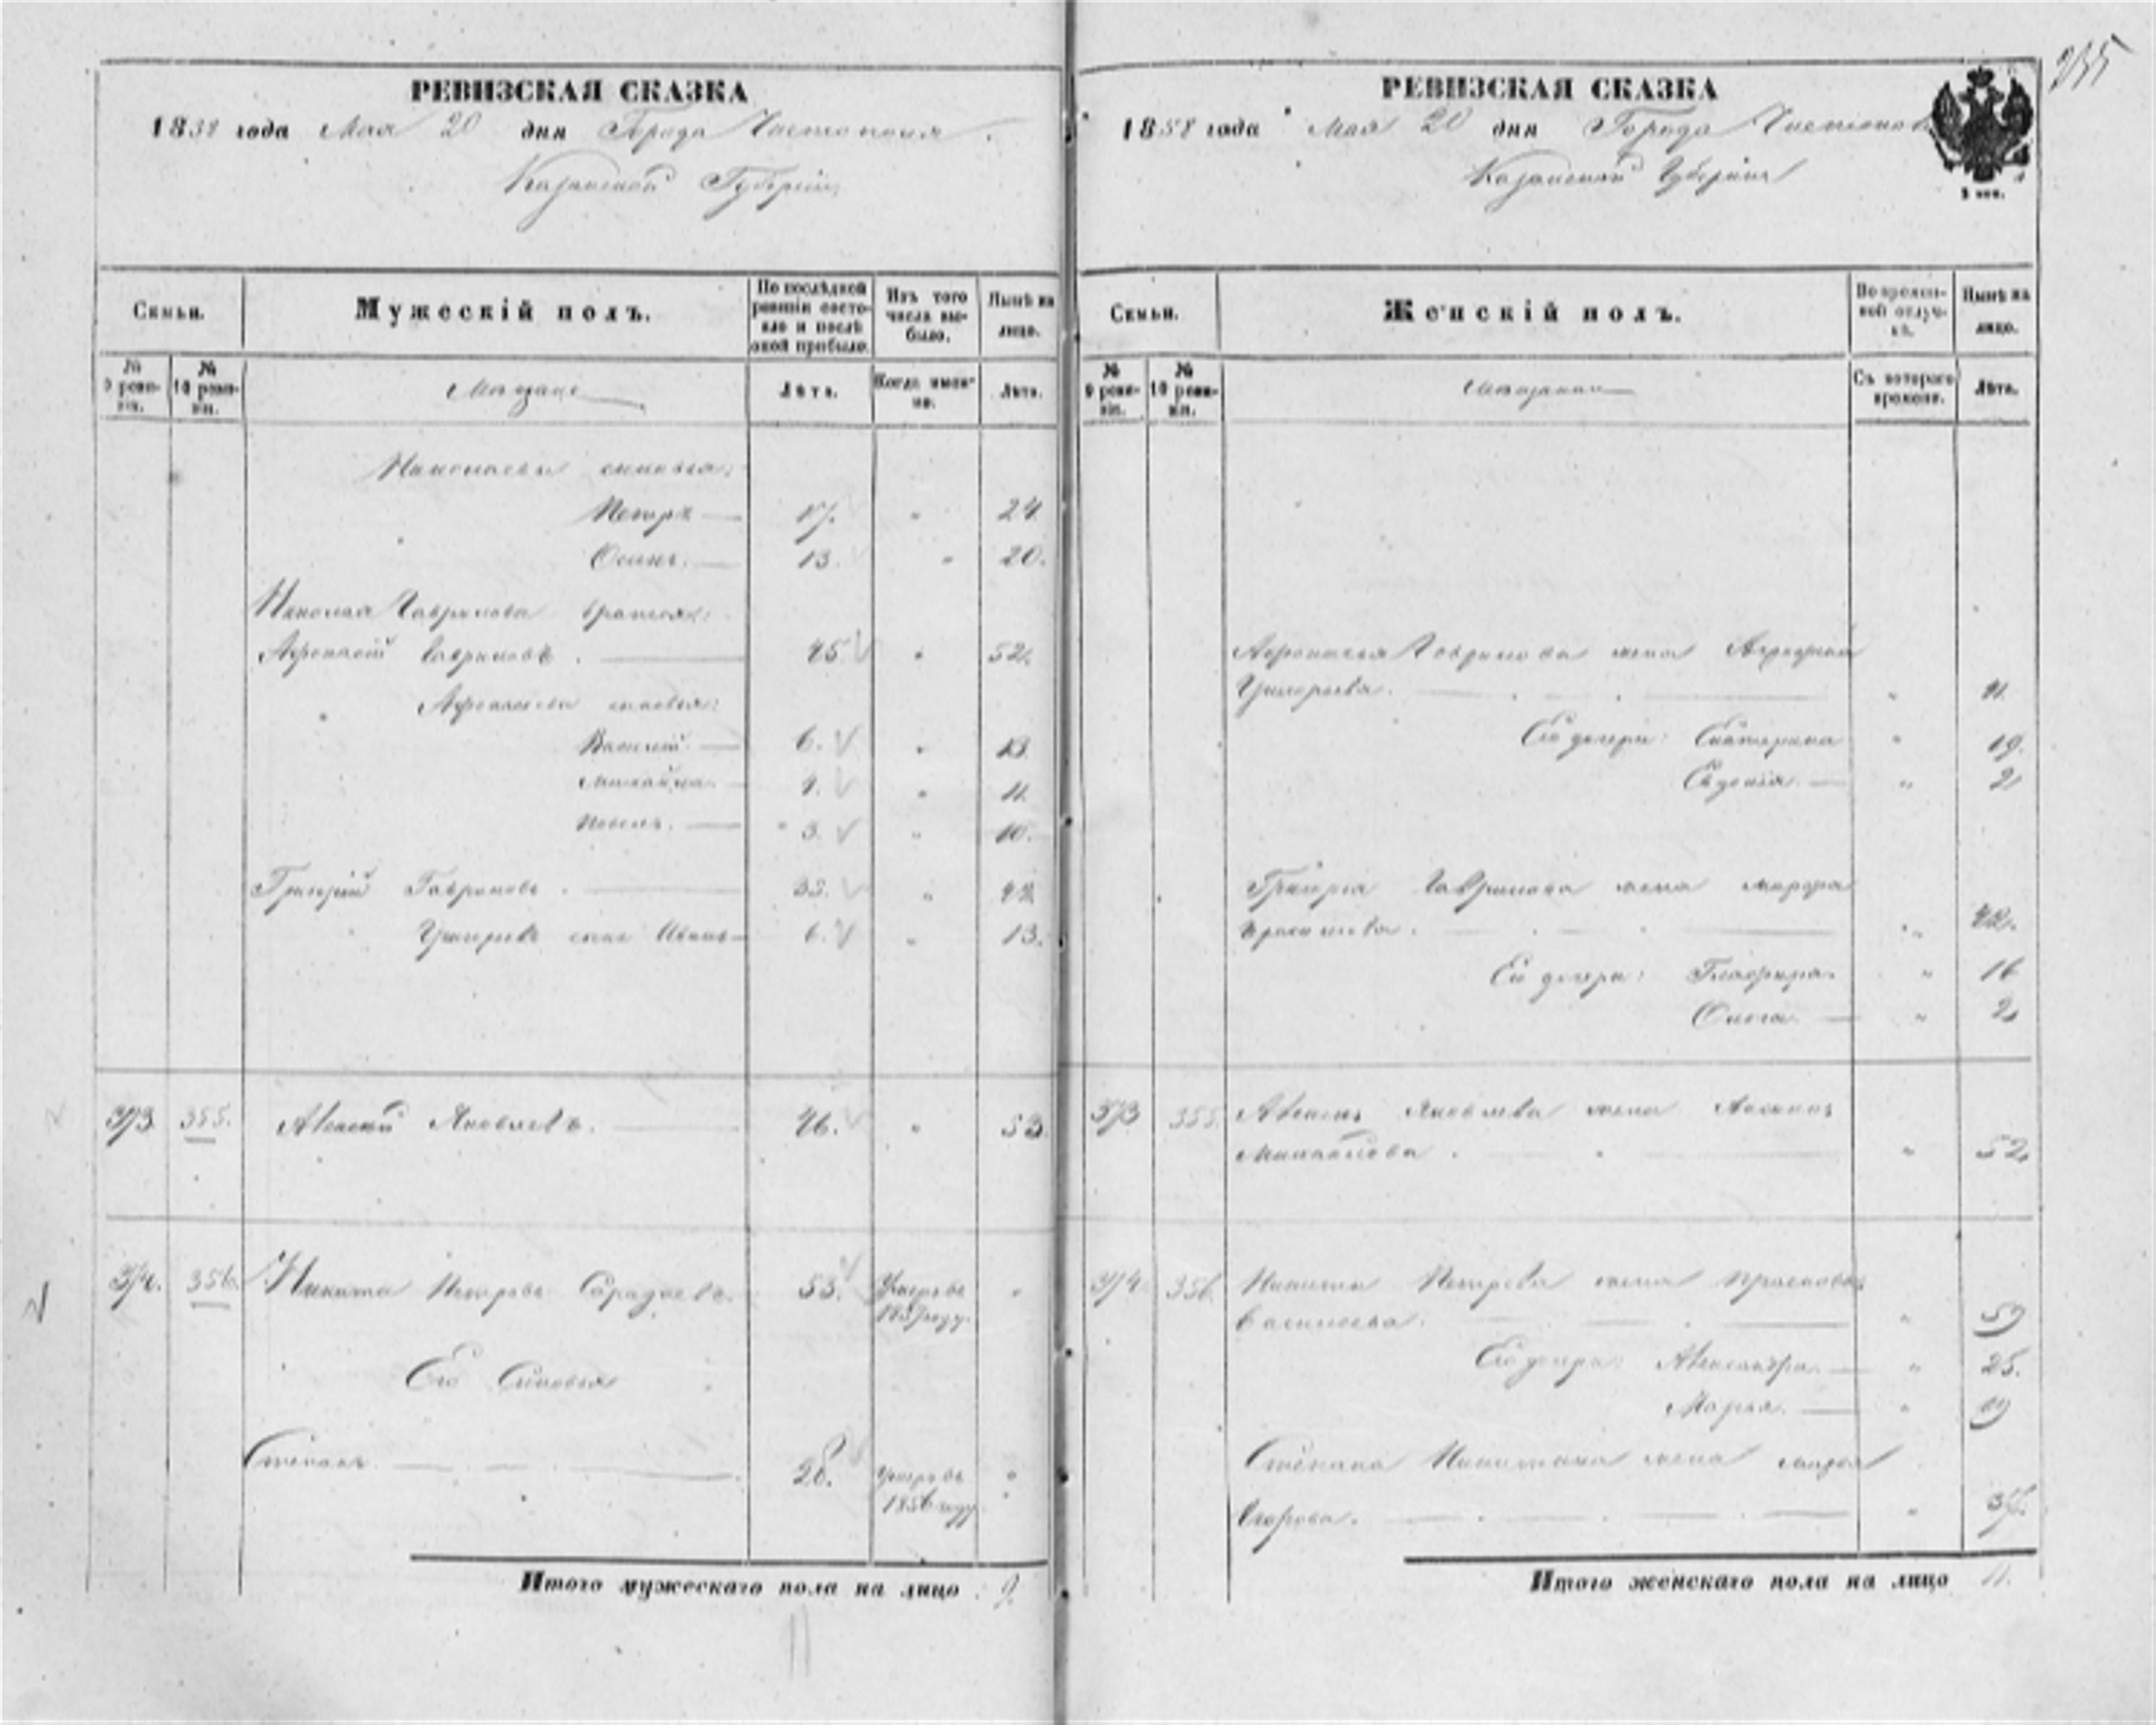 РЕВИЗСКАЯ СКАЗКА
1858 года Мая 20 дня Города Чистополя
Казанской Губерніи
Семьи.
Мужескій полъ.
По послѣдней ревизіи состояло и послѣ оной прибыло.
Изъ того числа выбыло.
Нынѣ на лицо.
№ 9 ревизіи.
№ 10 ревизіи.
Мещане
Лѣта.
Когда именно.
Лѣта.
Николаевы сыновья:
Петръ — 17. " 24.
Осипъ. — 13. " 20.
Николая Гаврилова братья:
Афонасій Гавриловъ. — 45. " 52.
Афонасьевы сыновья:
Василій. — 6. " 13.
Михайла. — 4. " 11.
Павелъ. — 3. " 10.
Григорій Гавриловъ. — 35. " 42.
Григорьевъ сынъ Иванъ — 6. " 13.
373. 355. Алексей Яковлевъ. — 46. " 53.
374. 356. Никита Петровъ 53. Умеръ въ "
году.
Его Сыновья
Степанъ. — 28. Умеръ въ "
1856 году
Итого мужескаго пола на лицо 9.
РЕВИЗСКАЯ СКАЗКА
1858 года Мая 20 дня Города
Казанской Губерніи
2 коп.
Семьи.
Женскій полъ.
Во временной отлучкѣ.
Нынѣ на лицо.
№ 9 ревизіи.
№ 10 ревизіи.
Мещанки
Съ котораго времени.
Лѣта.
Афонасья Гаврилова жена
Григорьева. — " 41.
Его дочери: Екатерина " 19.
Евдокія. — " 2
Григорья Гаврилова жена Марфа
— " 42.
Его дочери: Глафира. " 16
Ольга. — " 2
373 355. Алексея Яковлева жена
Михайлова. — " 52.
374. 356. Никиты Петрова жена Прасковья
Васильева. — " 59
Его дочери: Александра. — " 25.
Марья. — " 19
Степана Никитина жена
Егорова. — "
Итого женскаго пола на лицо 11.